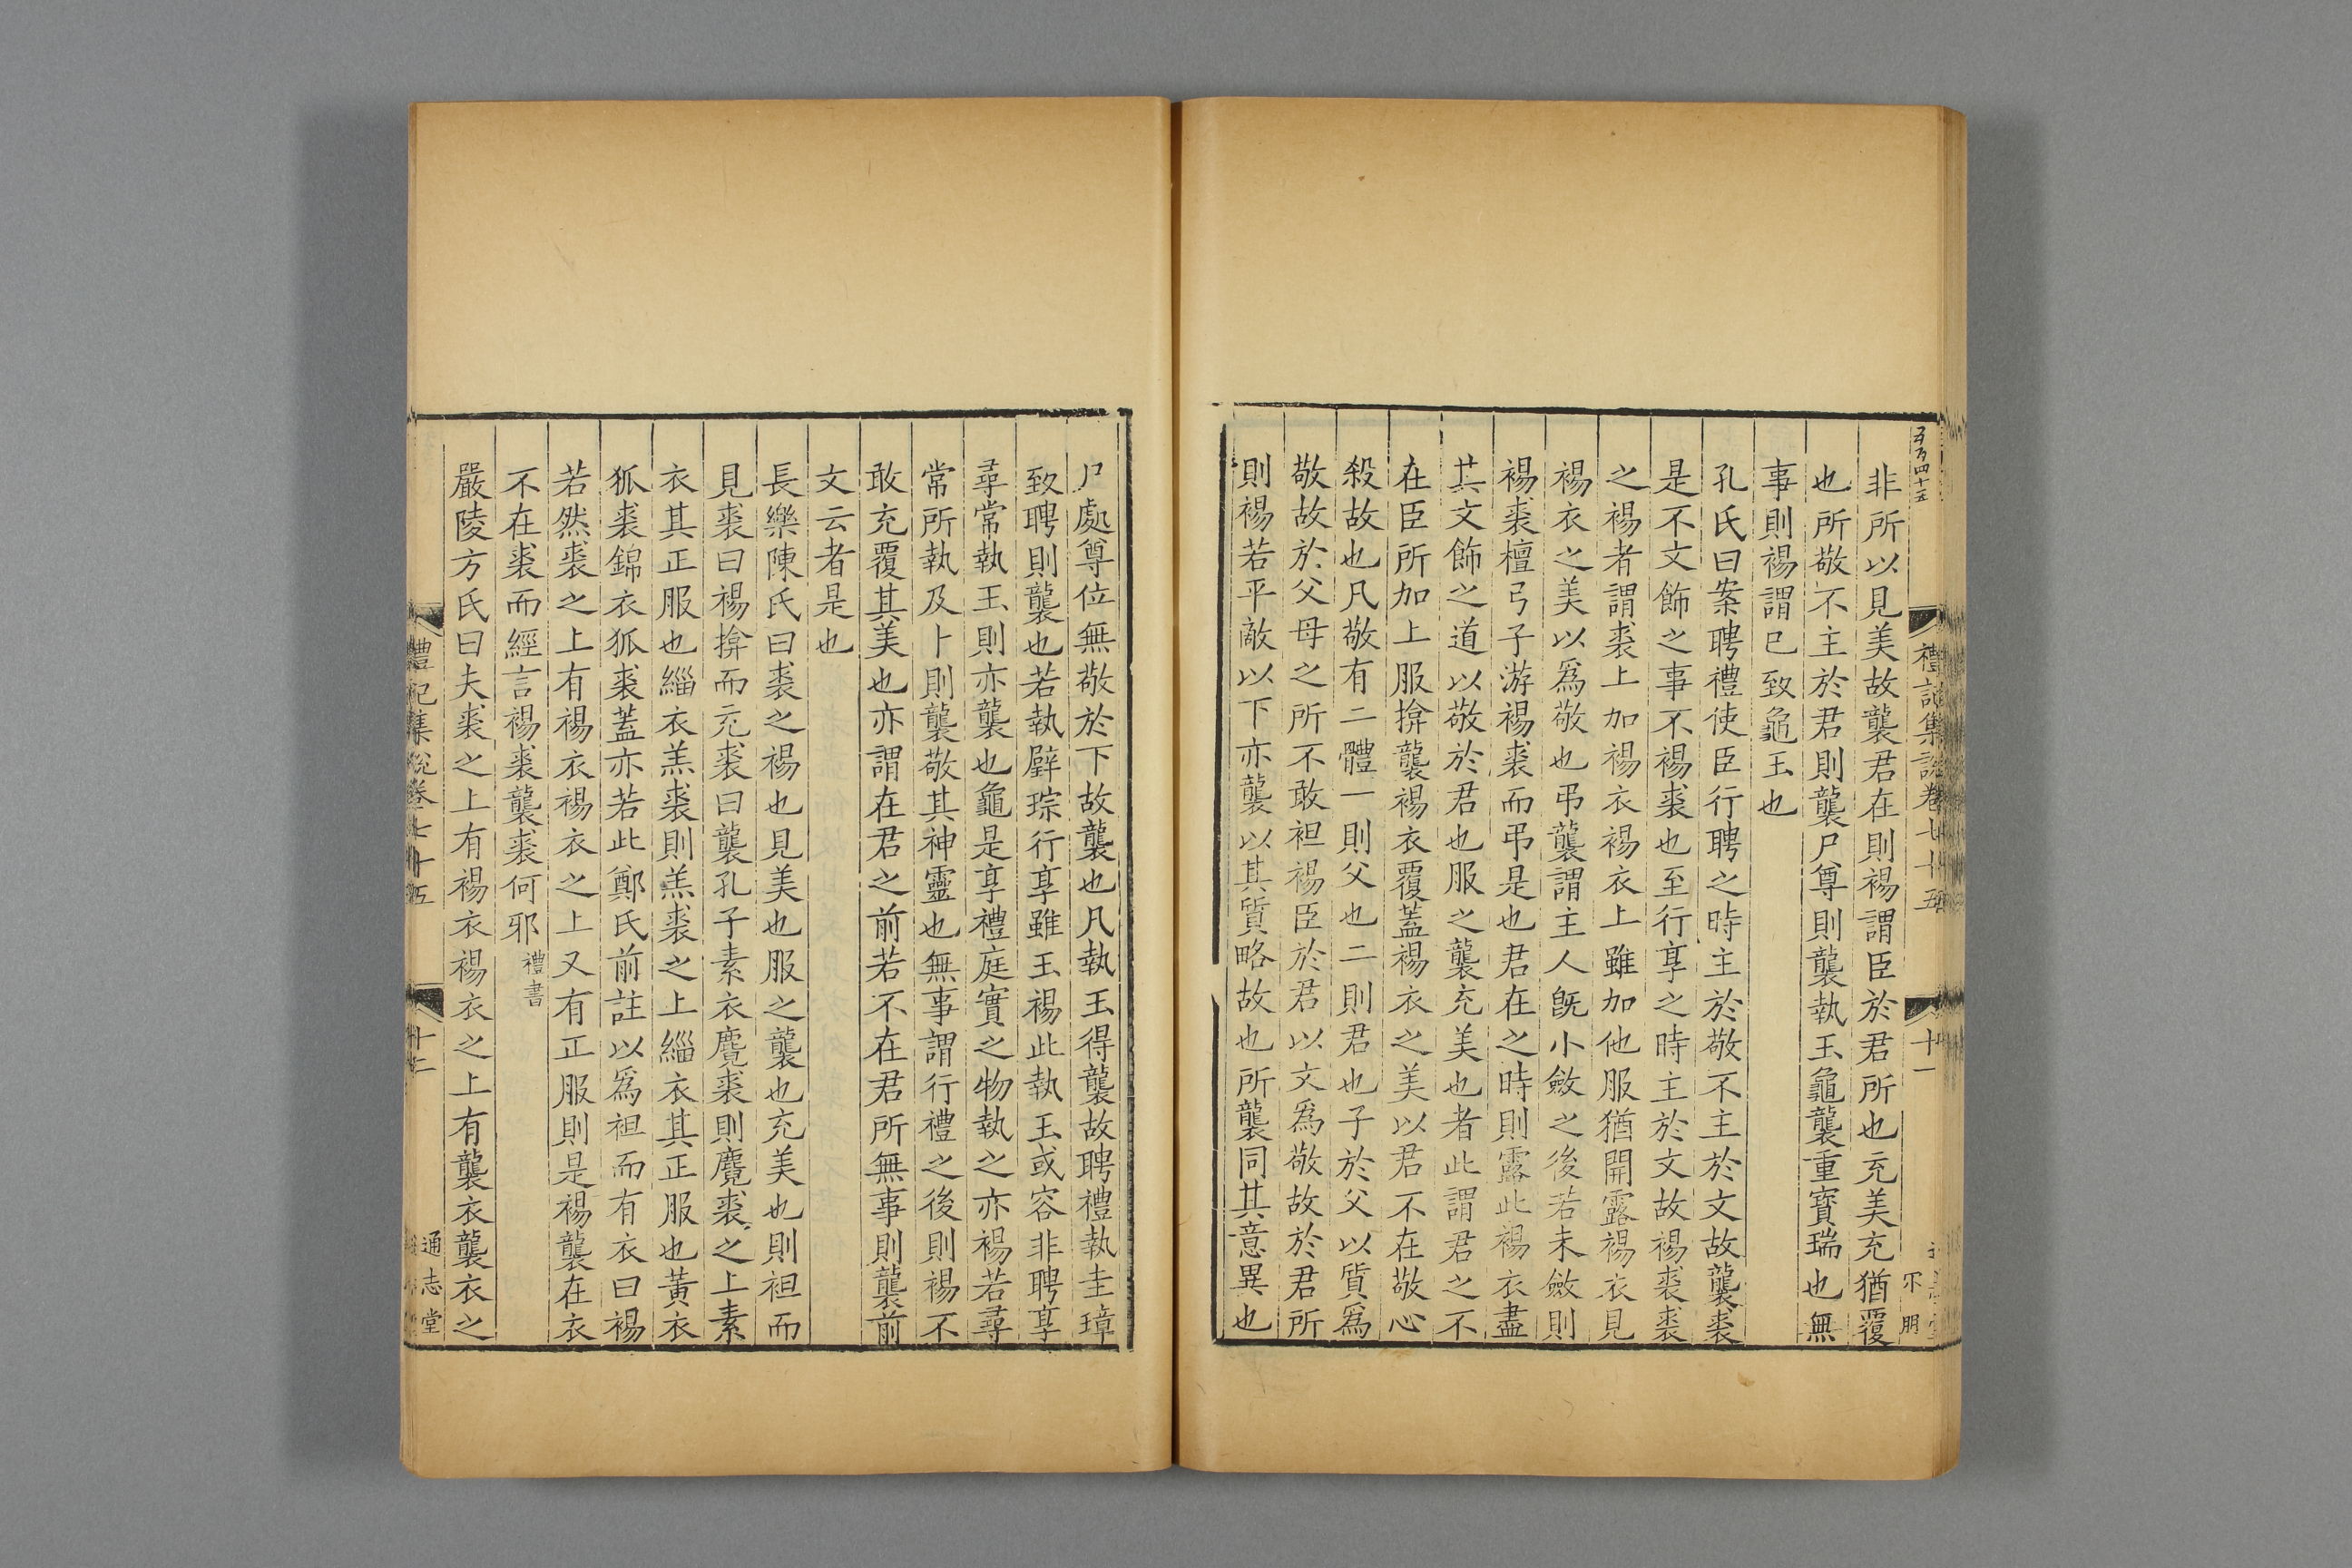 禮記集說卷七十五
十一
非所以見美故襲君在則裼謂臣於君所也充美充猶覆
也所敬不主於君則襲尸尊則襲執玉龜襲重寳瑞也無
事則裼謂已致龜玉也
孔氏曰案聘禮使臣行聘之時主於敬不主於文故襲裘
是不文飾之事不裼裘也至行享之時主於文故裼裘裘
之裼者謂裘上加裼衣裼衣上雖加他服猶開露裼衣見
裼衣之美以爲敬也弔襲謂主人旣小斂之後若未斂則
裼裘檀弓子游裼裘而弔是也君在之時則露此裼衣盡
其文飾之道以敬於君也服之襲充美也者此謂君之不
在臣所加上服揜襲裼衣覆蓋裼衣之美以君不在敬心
殺故也凡敬有二體一則父也二則君也子於父以質爲
敬故於父母之所不敢袒裼臣於君以文爲敬故於君所
則裼若平敵以下亦襲以其質略故也所襲同其意異也
尸處尊位無敬於下故襲也凡執玉得襲故聘禮執圭璋
致聘則襲也若執璧琮行享雖玉裼此執玉或容非聘享
尋常執玉則亦襲也龜是享禮庭實之物執之亦裼若尋
常所執及卜則襲敬其神靈也無事謂行禮之後則裼不
敢充覆其美也亦謂在君之前若不在君所無事則襲前
文云者是也
長樂陳氏曰裘之裼也見美也服之襲也充美也則袒而
見裘曰裼揜而充裘曰襲孔子素衣麑裘則麑裘之上素
衣其正服也緇衣羔裘則羔裘之上緇衣其正服也黃衣
狐裘錦衣狐裘蓋亦若此鄭氏前註以爲袒而有衣曰裼
若然裘之上有裼衣裼衣之上又有正服則是裼襲在衣
不在裘而經言裼裘襲裘何邪禮書
嚴陵方氏曰夫裘之上有裼衣裼衣之上有襲衣襲衣之
禮記集說卷七十五
十二
通志堂